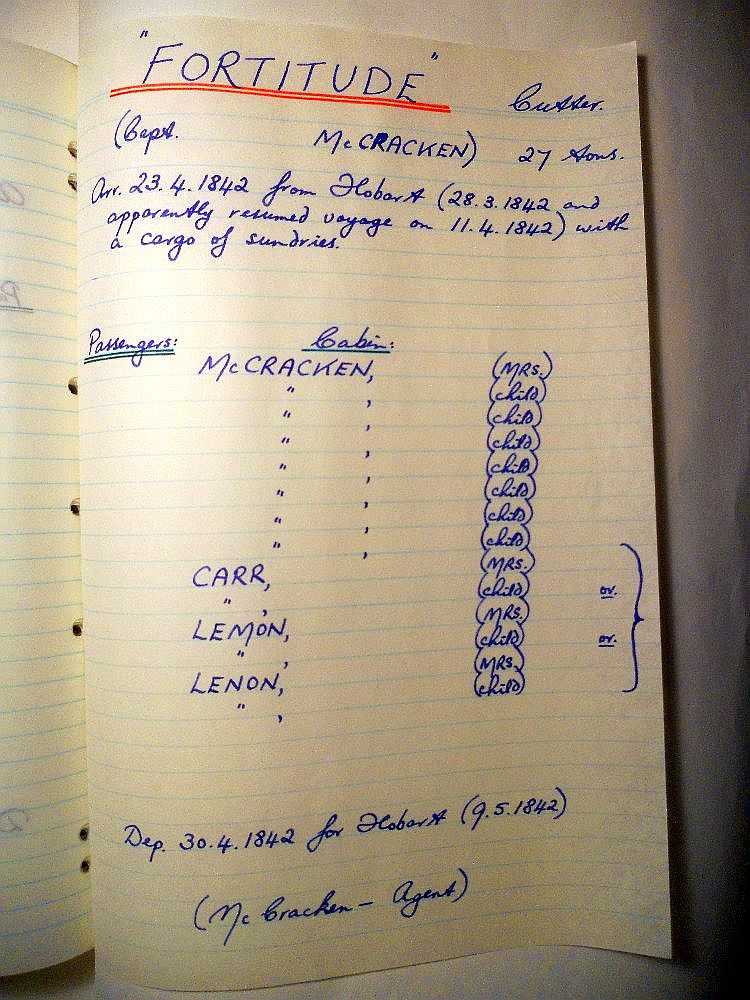 "FORTITUDE" Cutter.
(Capt. McCRACKEN) 27 tons.
Arr. 23.4.1842 from Hobart (28.3.1842 and
apparently resumed voyage on 11.4.1842) with
a cargo of sundries.
Passengers: Cabin:
McCRACKEN, (MRS.)
" , (child)
" , (child)
" , (child)
" , (child)
" , (child)
" , (child)
" , (child)
CARR, (MRS.)
" , (child) or.
LEMON, (MRS.)
" , (child) or.
LENON, (MRS.)
" , (child)
Dep. 30.4.1842 for Hobart (9.5.1842)
(McCracken - Agent)